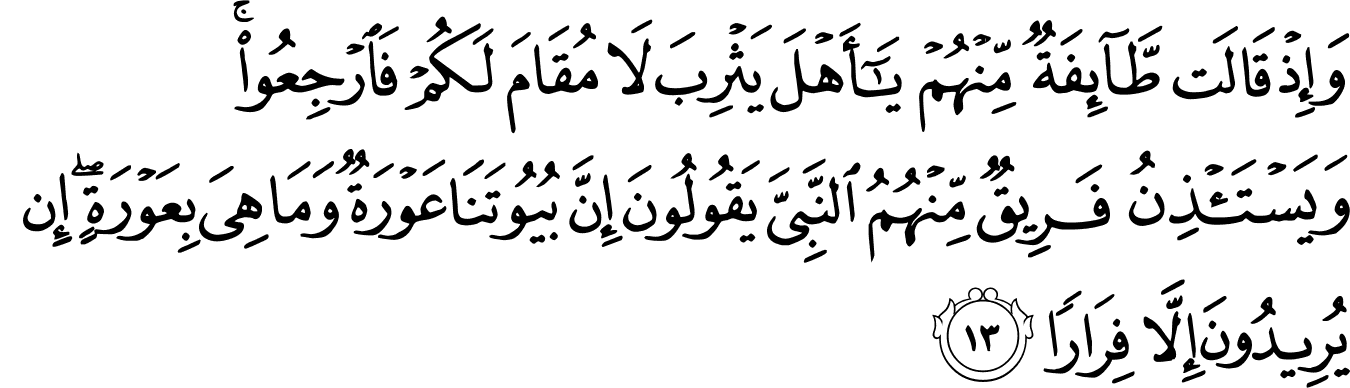 وَإِذْ قَالَت طَّآئِفَةٌ مِّنْهُمْ يَـٰٓأَهْلَ يَثْرِبَ لَا مُقَامَ لَكُمْ فَٱرْجِعُوا۟ ۚ
وَيَسْتَـْٔذِنُ فَرِيقٌ مِّنْهُمُ ٱلنَّبِىَّ يَقُولُونَ إِنَّ بُيُوتَنَا عَوْرَةٌ وَمَا هِىَ بِعَوْرَةٍ ۖ إِن
يُرِيدُونَ إِلَّا فِرَارًا ١٣